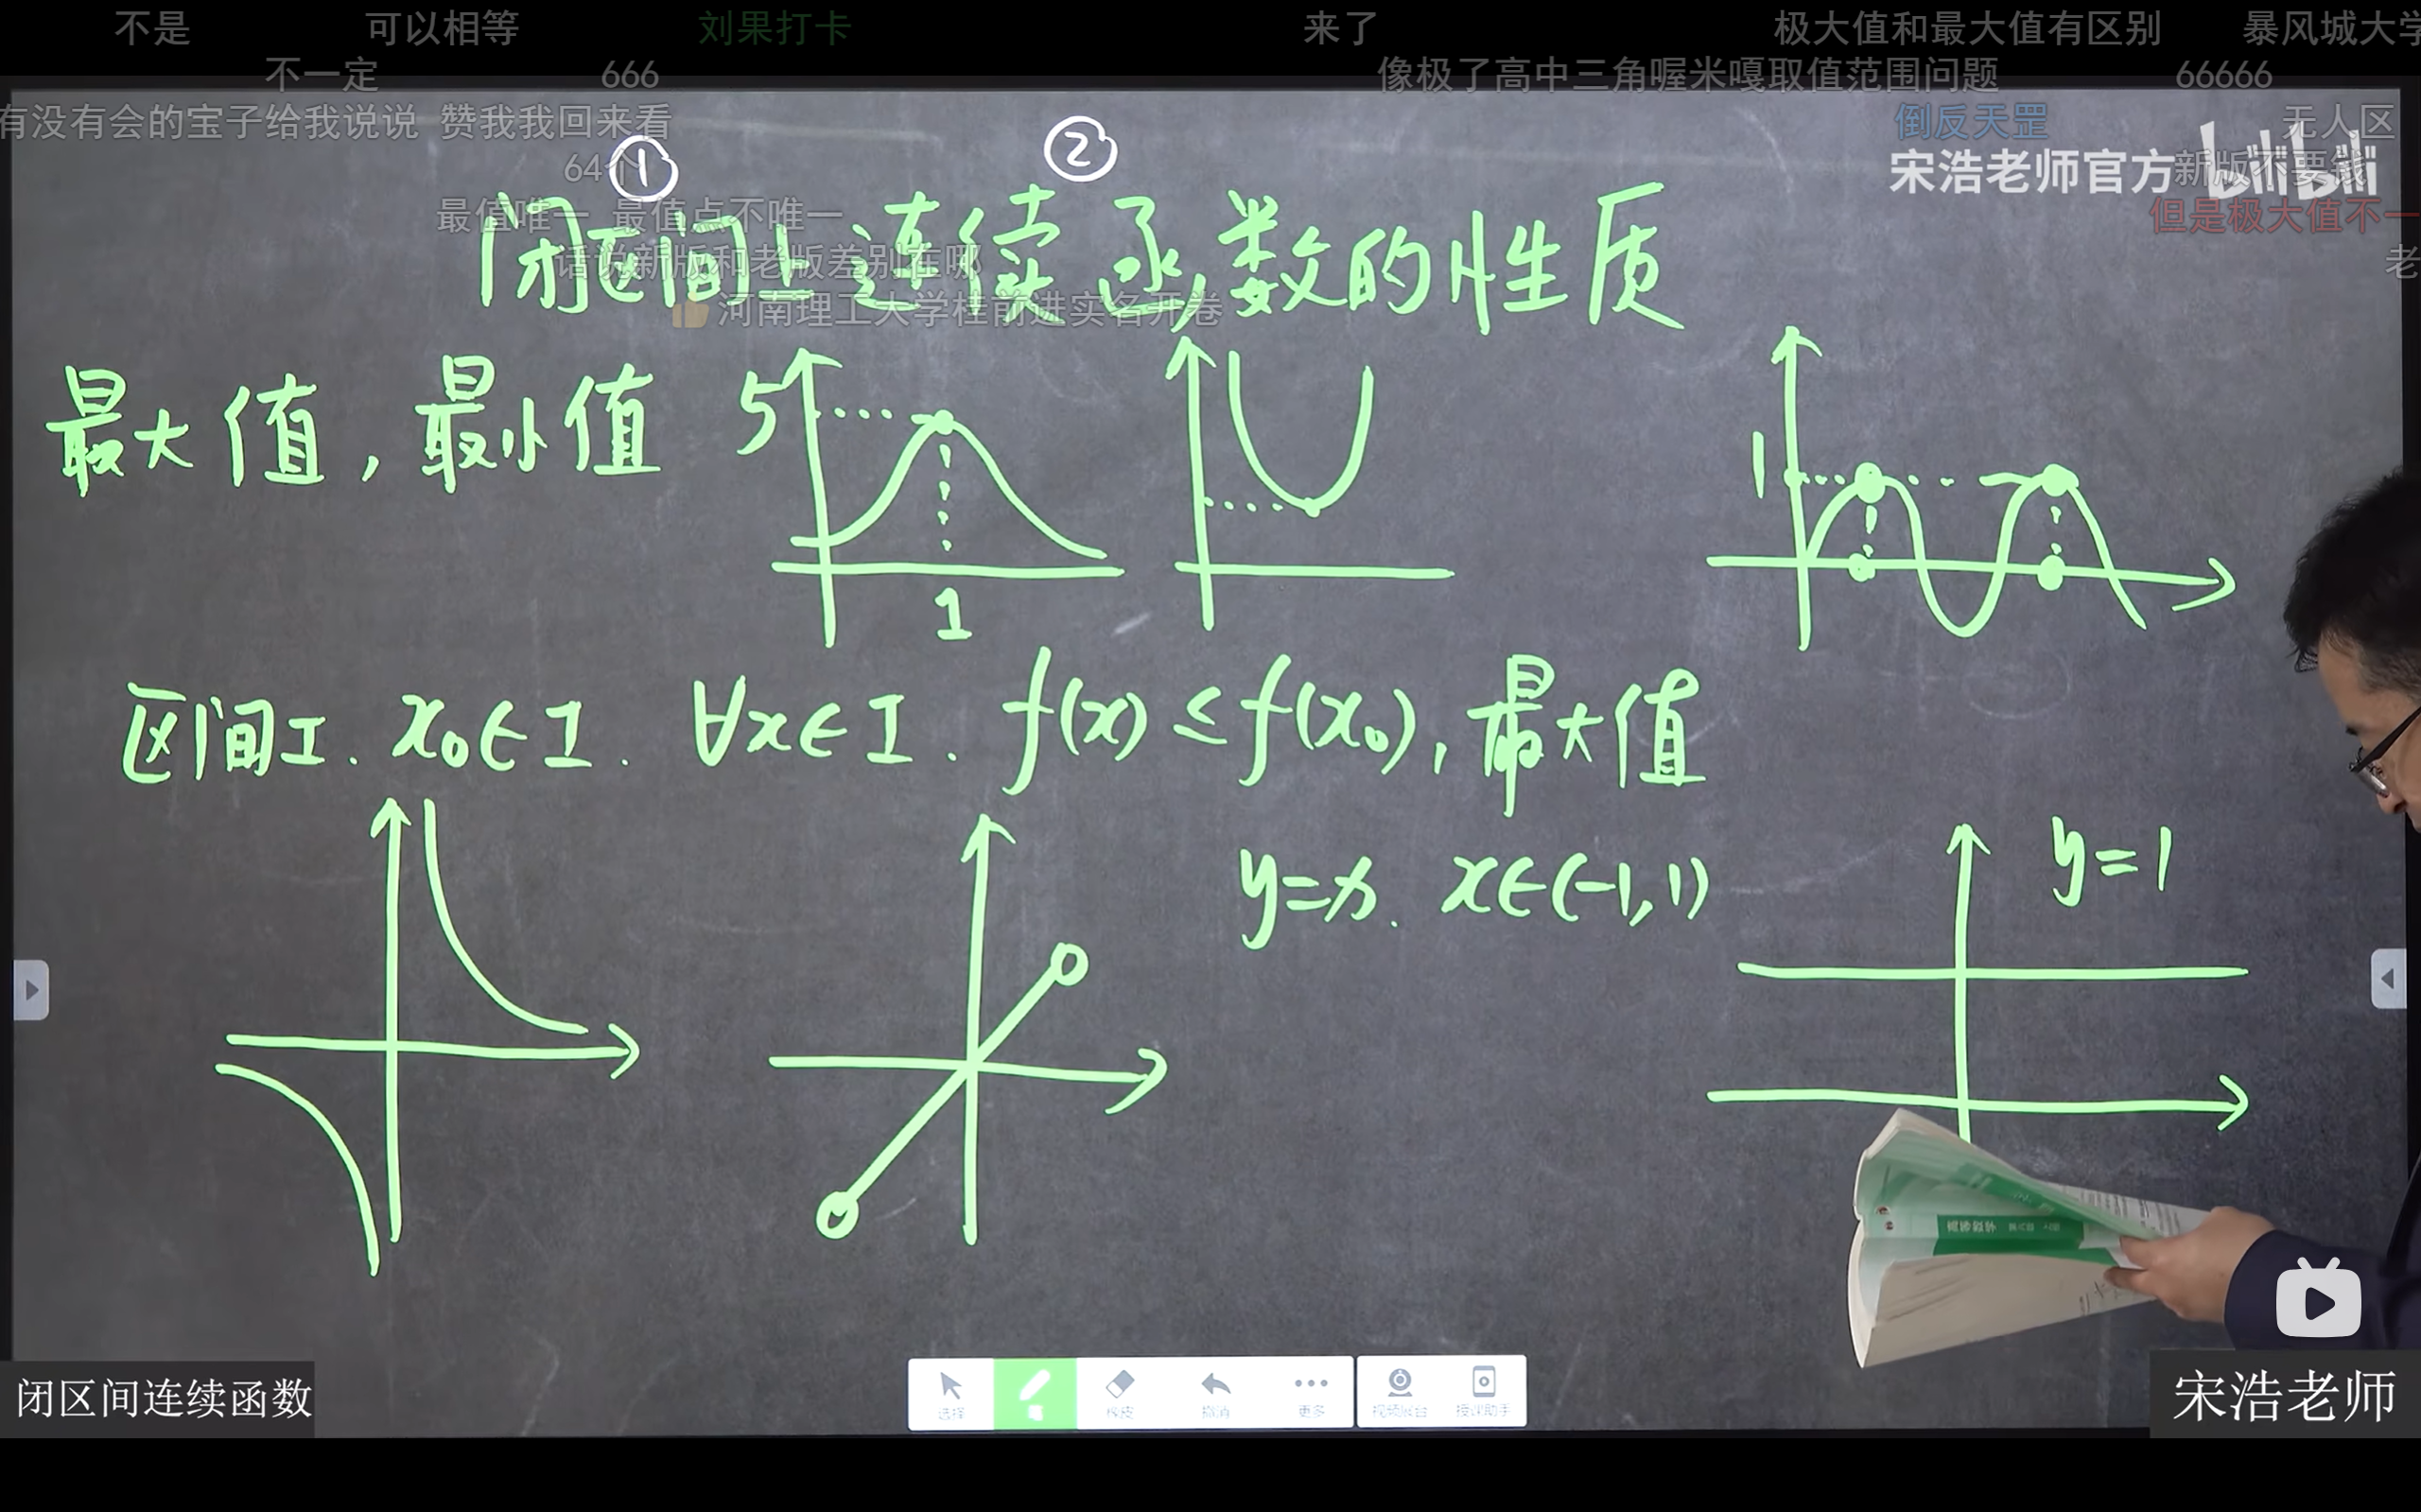 不是 可以相等 刘果打卡 来了 极大值和最大值有区别 暴风城大学
不一定 666 像极了高中三角喔米嘎取值范围问题 66666
有没有会的宝子给我说说 赞我我回来看 倒反天罡 无人区
64个 ① ② 宋浩老师官方 新版不要钱 bilibili
最值唯一 最值点不唯一 但是极大值不一
话说新版和老版差别在哪 老
河南理工大学桂前进实名开卷
闭区间上连续函数的性质
最大值，最小值 5 1 1
区间I. x₀∈I. ∀x∈I. f(x)≤f(x₀), 最大值
y=x. x∈(-1,1) y=1
高等数学
闭区间连续函数 选择 笔 橡皮 撤消 更多 视频展台 授课助手 宋浩老师